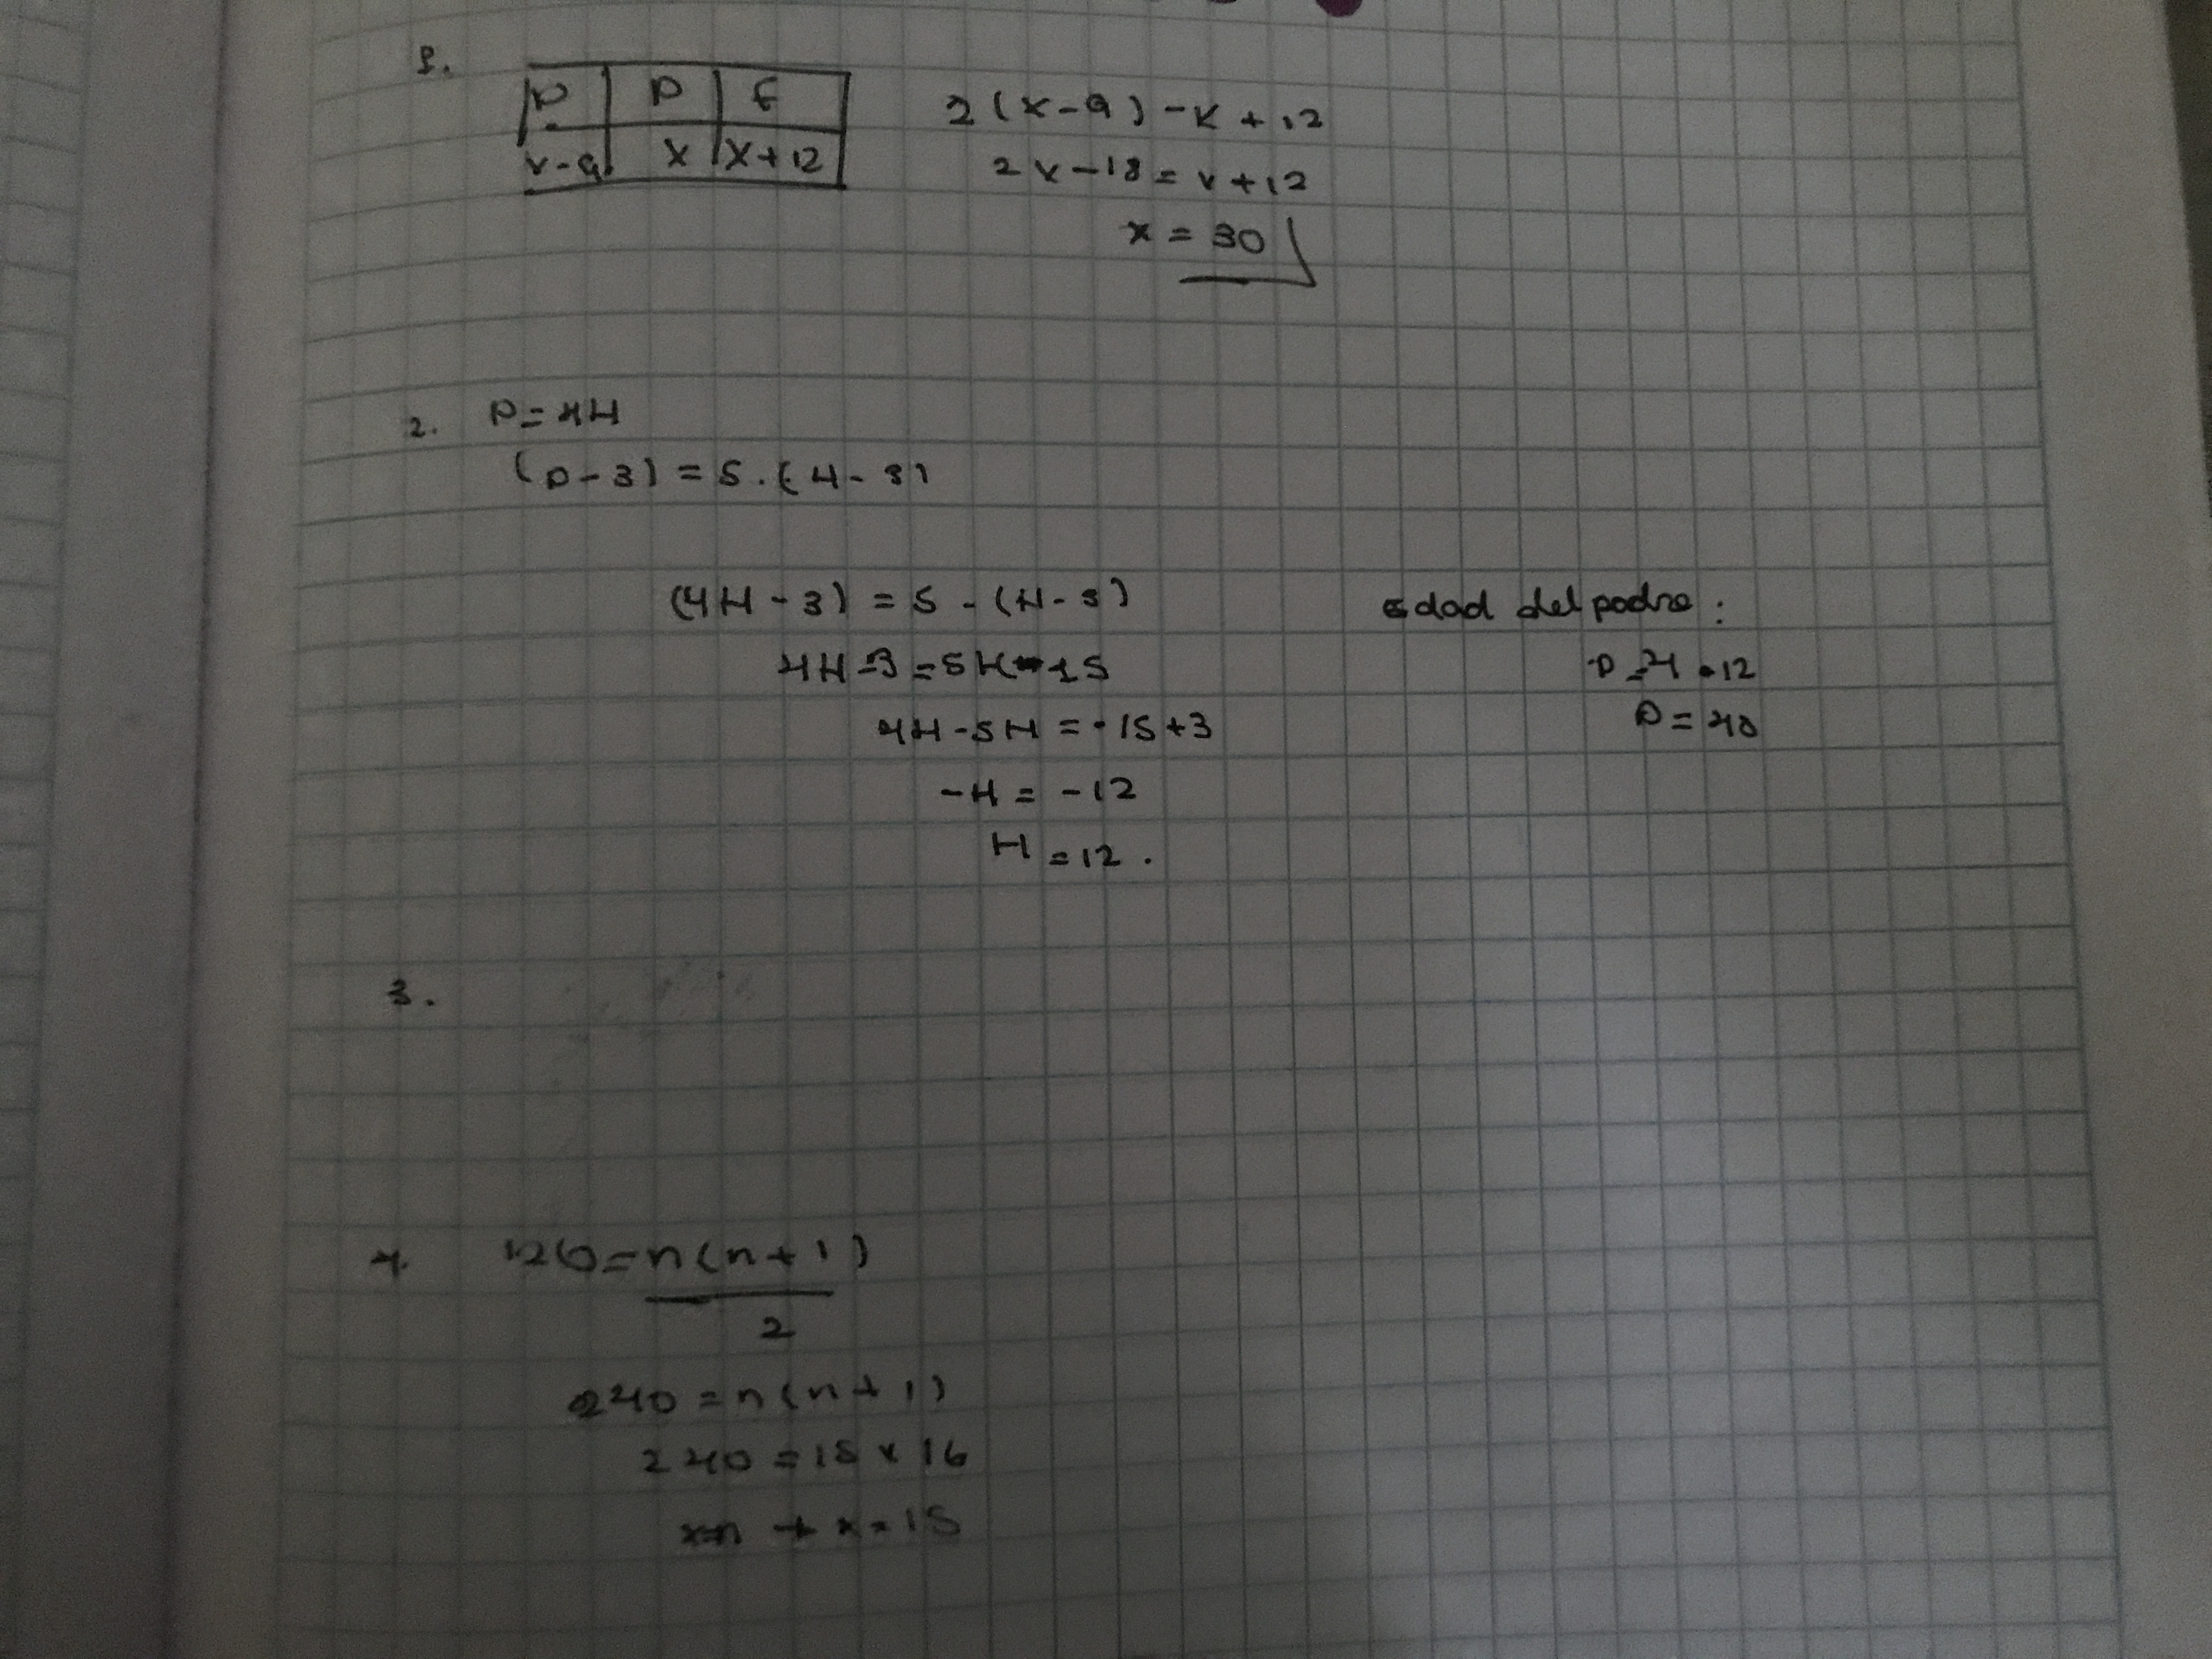 1.
P P F
x-9 x x+12
2(x-9)-x+12
2x-18=x+12
x=30
2. P=4H
(P-3)=5.(4-3)
(4H-3)=5-(H-3)
4H-3=5H-15
4H-5H=-15+3
-H=-12
H=12.
edad del padre:
P=4.12
P=48
3.
4. 120=n(n+1)
2
240=n(n+1)
240=15x16
x=15